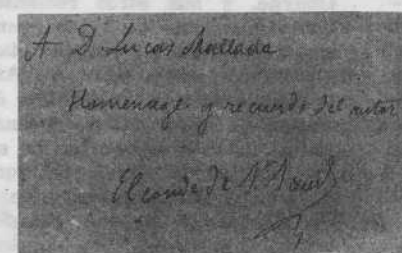 A D. Lucas Mallada
Homenage y recuerdo del autor
El conde de